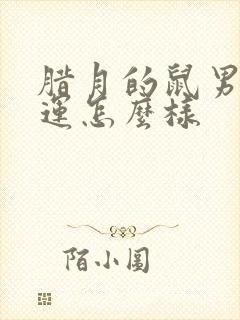 腊月的鼠男
運怎麼樣
陌小圍